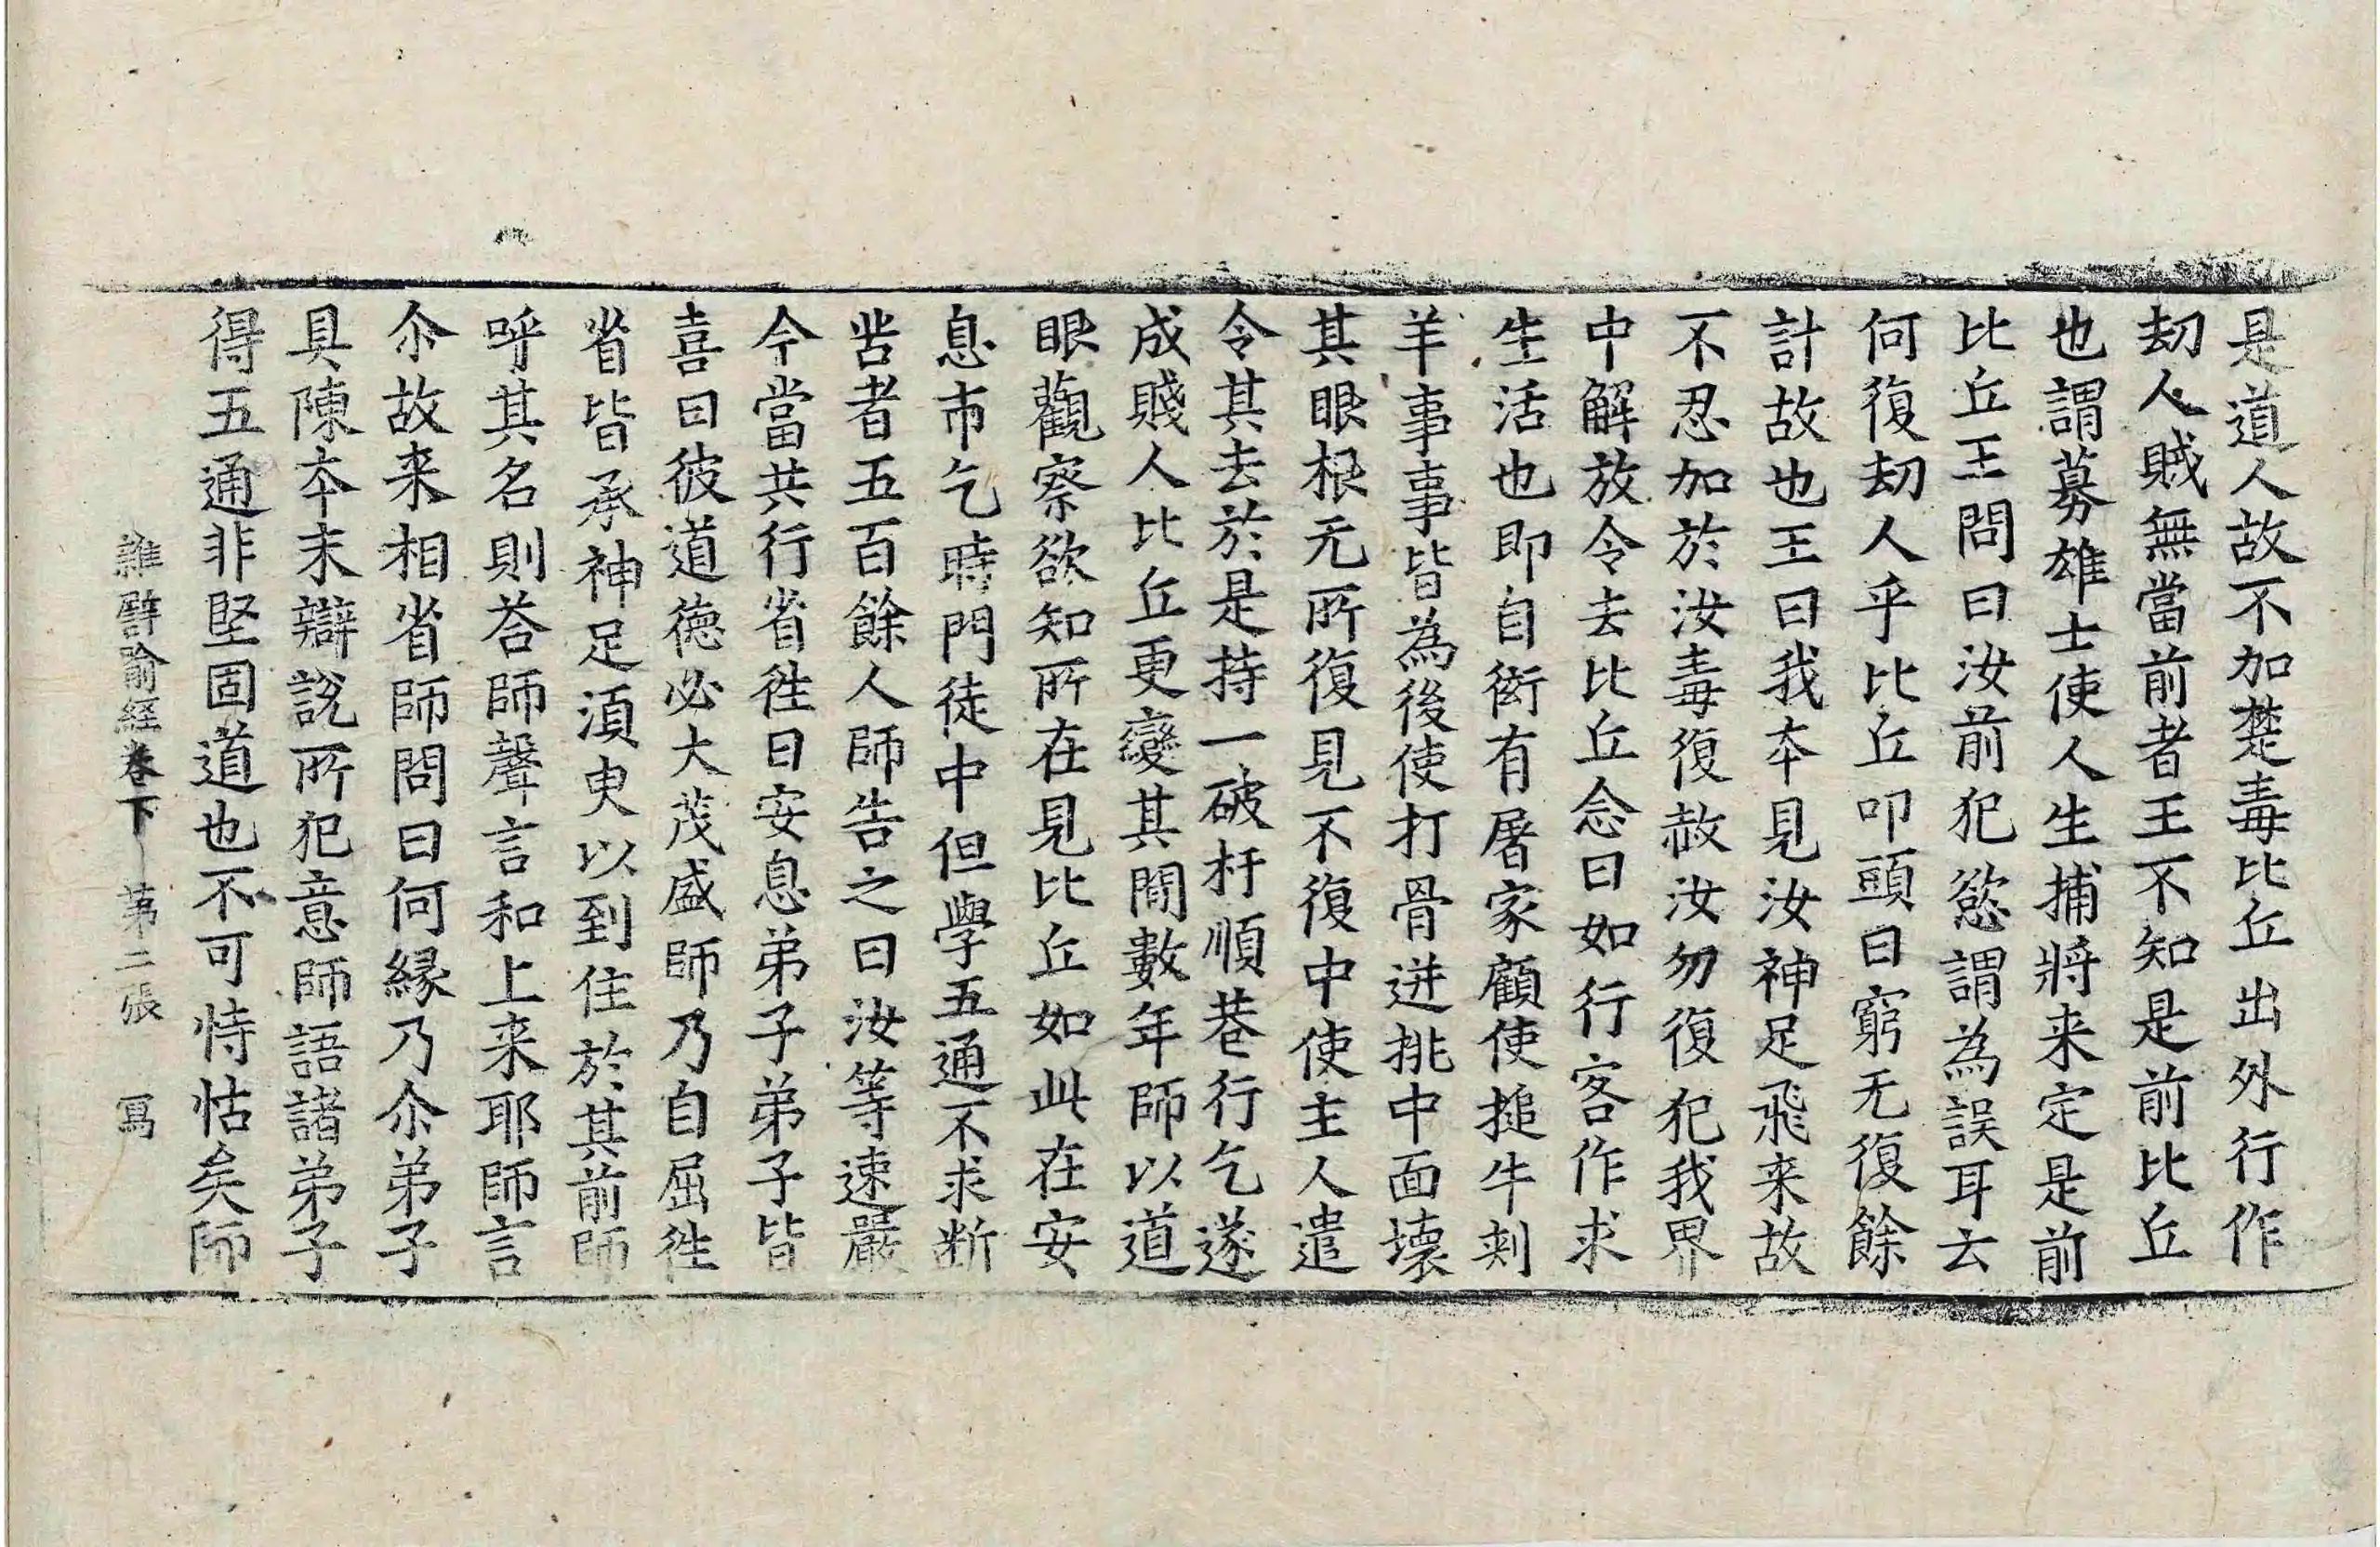 是道人故不加楚毒比丘出外行作
刼人賊無當前者王不知是前比丘
也謂募雄士使人生捕將来定是前
比丘王問曰汝前犯慾謂為誤耳云
何復刼人乎比丘叩頭曰窮无復餘
計故也王曰我夲見汝神足飛来故
不忍加於汝毒復赦汝勿復犯我界
中解放令去比丘念曰如行客作求
生活也即自衒有屠家顧使搥牛剌
羊事事皆為後使打骨迸挑中面壊
其眼根无所復見不復中使主人遣
令其去於是持一破杅順巷行乞遂
成賤人比丘更變其間數年師以道
眼觀察欲知所在見比丘如此在安
息市乞時門徒中但學五通不求断
苦者五百餘人師告之曰汝等速嚴
今當共行省徃日安息弟子弟子皆
喜曰彼道徳必大茂盛師乃自屈徃
省皆承神足湏臾以到住於其前師
呼其名則荅師聲言和上来耶師言
尒故来相省師問曰何縁乃尒弟子
具陳夲末辯說所犯意師語諸弟子
得五通非堅固道也不可恃怙矣師
雜譬喻經卷下 第二張 寫